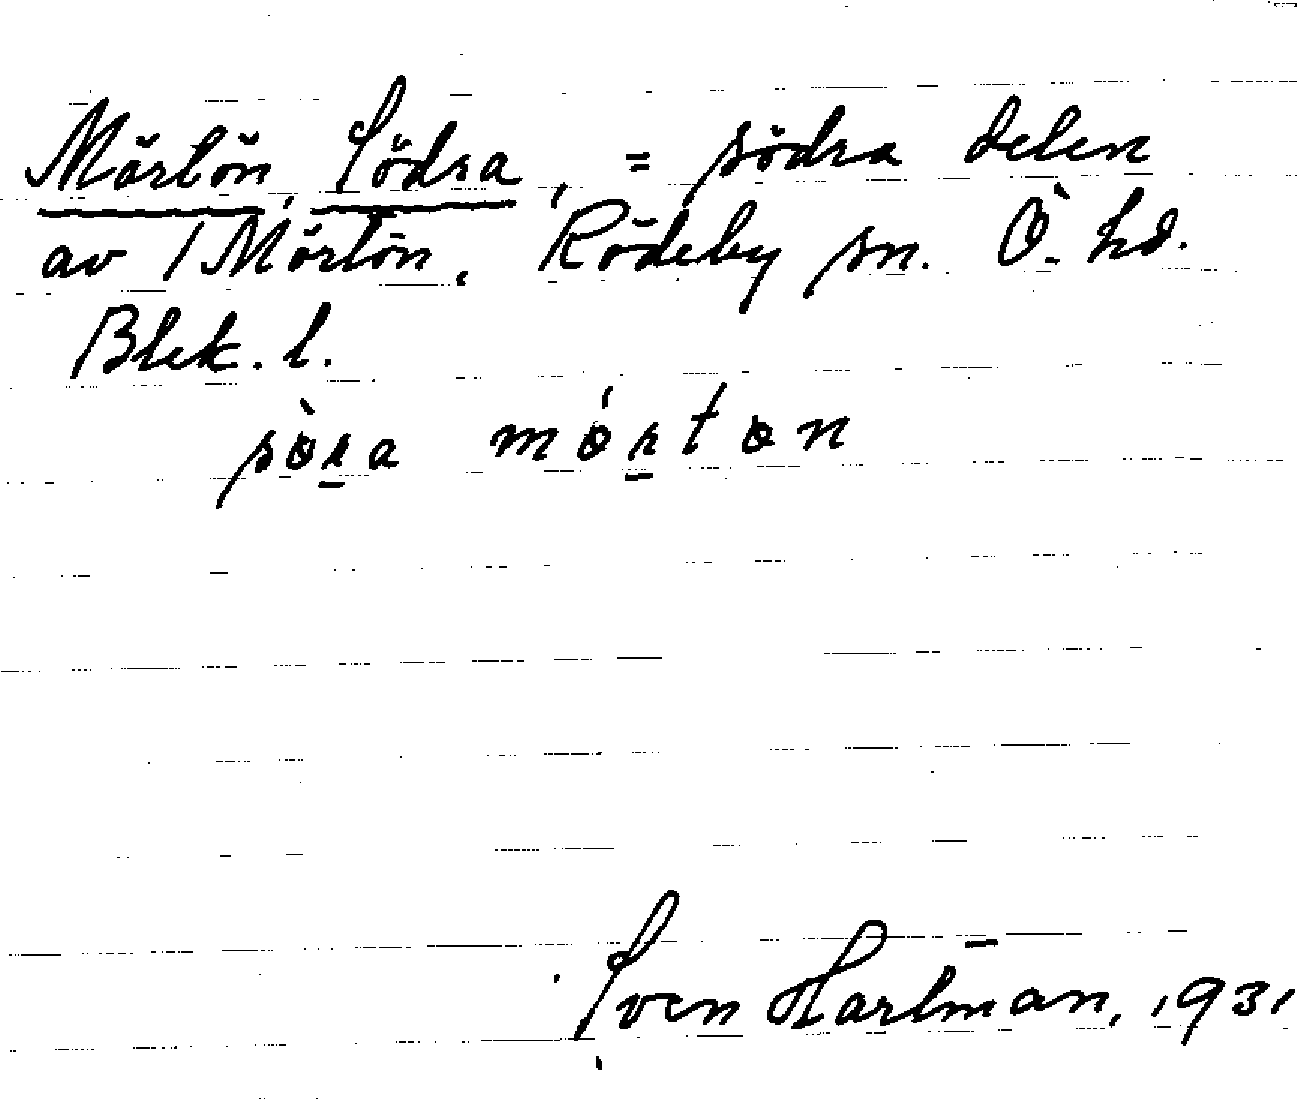 Mörtön, Södra, = södra delen
av 1 Mörtön. Rödeby sn. Ö. hd.
Blek. l.
sör̲a mór̲tөn
Sven Hartman, 1931